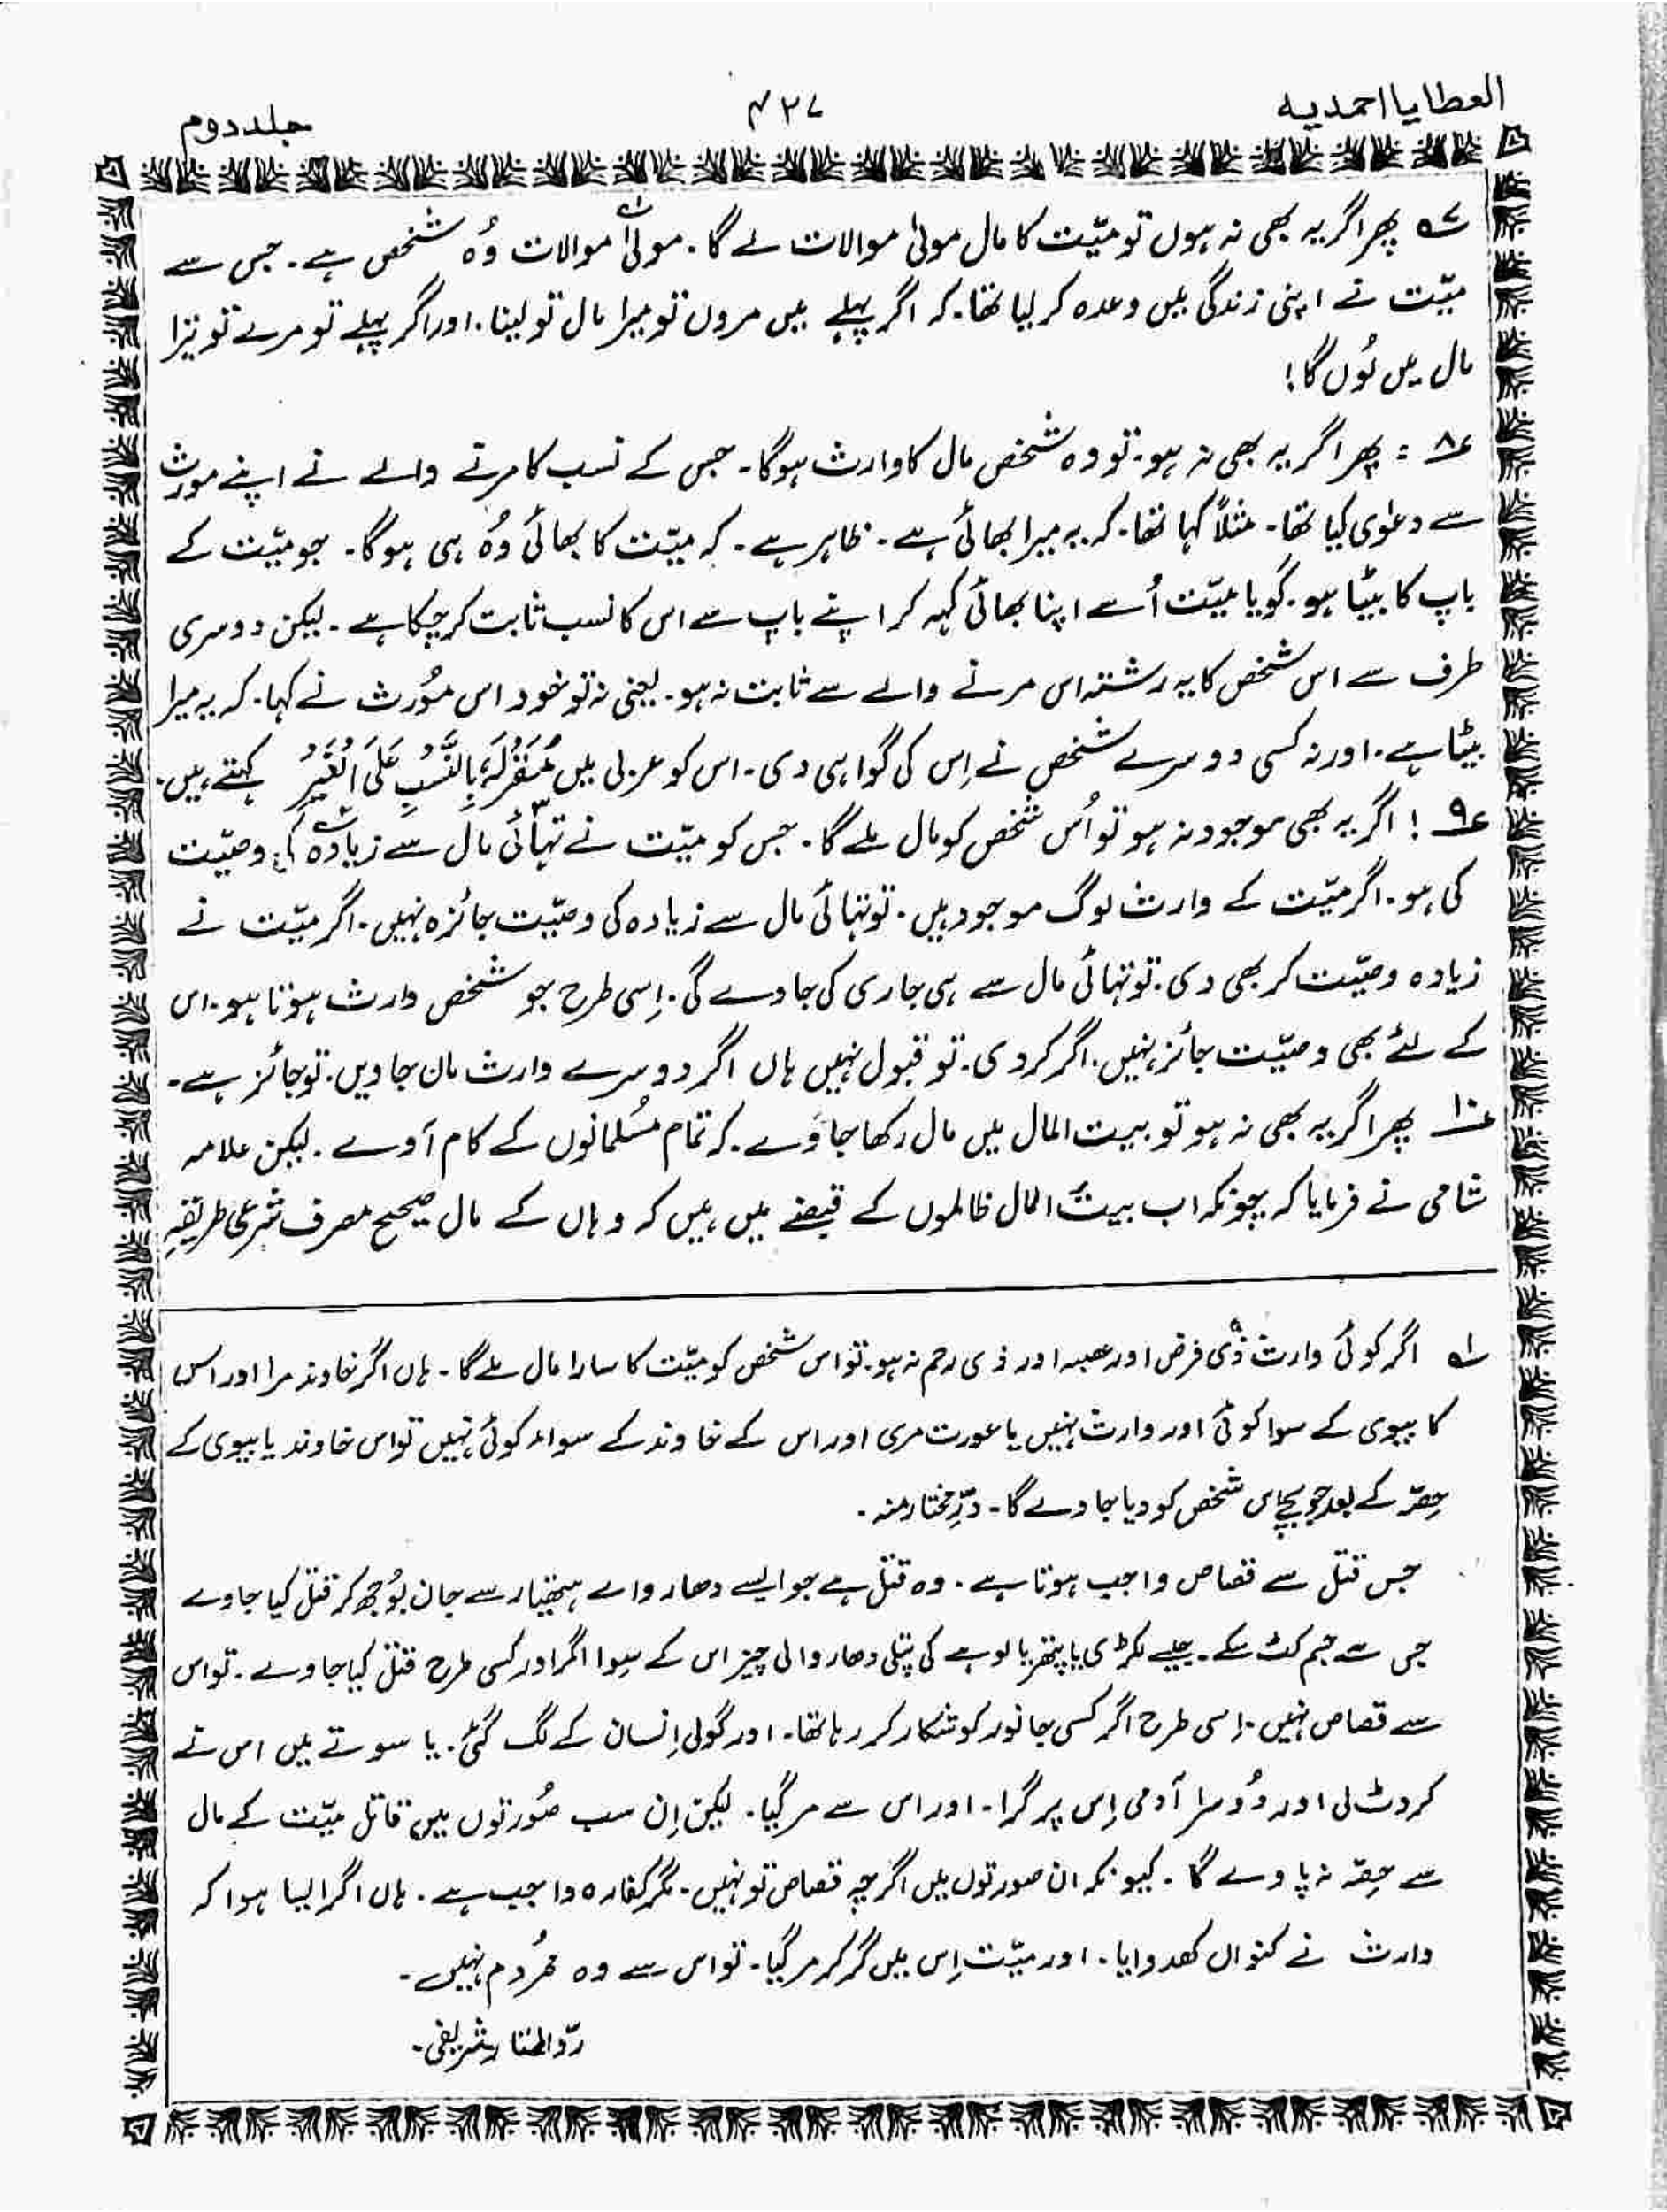 العطایا احمدیہ
۴۳۷
جلد دوم
۷؎ پھر اگر یہ بھی نہ ہوں تو میّت کا مال مولیٰ موالات لے گا۔ مولیٰ موالات وُہ شخص ہے۔ جس سے
میّت نے اپنی زندگی میں وعدہ کر لیا تھا۔ کہ اگر پہلے میں مروں تو میرا مال تو لینا۔ اور اگر پہلے تو مرے تو تیرا
مال میں لُوں گا!
۸؎ : پھر اگر یہ بھی نہ ہو۔ تو وہ شخص مال کا وارث ہوگا۔ جس کے نسب کا مرنے والے نے اپنے مورث
سے دعوٰی کیا تھا۔ مثلاً کہا تھا۔ کہ یہ میرا بھائی ہے۔ ظاہر ہے۔ کہ میّت کا بھائی وُہ ہی ہوگا۔ جو میّت کے
باپ کا بیٹا ہو۔ گویا میّت اُسے اپنا بھائی کہہ کر اپنے باپ سے اس کا نسب ثابت کر چکا ہے۔ لیکن دوسری
طرف سے اس شخص کا یہ رشتہ اس مرنے والے سے ثابت نہ ہو۔ یعنی نہ تو خود اس مُورث نے کہا۔ کہ یہ میرا
بیٹا ہے۔ اور نہ کسی دوسرے شخص نے اِس کی گواہی دی۔ اس کو عربی میں مُقَرلَہٗ بِالنَّسُبِ عَلَی الْغَیُرِ کہتے ہیں۔
۹؎ ! اگر یہ بھی موجود نہ ہو تو اُس شخص کو مال ملے گا۔ جس کو میّت نے تہائی مال سے زیادہ کی وصیّت
کی ہو۔ اگر میّت کے وارث لوگ موجود ہیں۔ تو تہائی مال سے زیادہ کی وصیّت جائزہ نہیں۔ اگر میّت نے
زیادہ وصیّت کر بھی دی۔ تو تہائی مال سے ہی جاری کی جاوے گی۔ اِسی طرح جو شخص وارث ہوتا ہو۔ اس
کے لئے بھی وصیّت جائز نہیں۔ اگر کر دی۔ تو قبول نہیں ہاں اگر دوسرے وارث مان جاویں۔ تو جائز ہے۔
۱۰؎ پھر اگر یہ بھی نہ ہو تو بیت المال میں مال رکھا جاوے۔ کہ تمام مُسلمانوں کے کام آوے۔ لیکن علامہ
شامی نے فرمایا کہ چونکہ اب بیتُ المال ظالموں کے قبضے میں ہیں کہ وہاں کے مال صحیح مصرف شرعی طریقہِ
۱؎ اگر کوئی وارث ذی فرض اور عصبہ اور ذی رحم نہ ہو۔ تو اس شخص کو میّت کا سارا مال ملے گا۔ ہاں اگر خاوند مرا اور اس
کا بیوی کے سوا کوئی اور وارث نہیں یا عورت مری اور اس کے خاوند کے سوا کوئی نہیں تو اس خاوند یا بیوی کے
حِصّہ کے بعد جو بچے اس شخص کو دیا جاوے گا۔ درِّمختار منہ۔
جس قتل سے قصاص واجب ہوتا ہے۔ وہ قتل ہے جو ایسے دھار والے ہتھیار سے جان بُوجھ کر قتل کیا جاوے
جس سے جسم کٹ سکے۔ جیسے لکڑی یا پتھر یا لوہے کی پتلی دھار والی چیز اس کے سِوا اگر اور کسی طرح قتل کیا جاوے۔ تو اس
سے قصاص نہیں۔ اِسی طرح اگر کسی جانور کو شکار کر رہا تھا۔ اور گولی اِنسان کے لگ گئی۔ یا سوتے میں اس نے
کروٹ لی اور دُوسرا آدمی اِس پر گرا۔ اور اس سے مر گیا۔ لیکن اِن سب صُورتوں میں قاتل میّت کے مال
سے حِصّہ نہ پاوے گا۔ کیونکہ ان صورتوں میں اگرچہ قصاص تو نہیں۔ مگر کفارہ واجب ہے۔ ہاں اگر ایسا ہوا کہ
وارث نے کنواں کھدوایا۔ اور میّت اِس میں گر کر مر گیا۔ تو اس سے وہ محرُوم نہیں۔
ردّ المختار شریفی۔